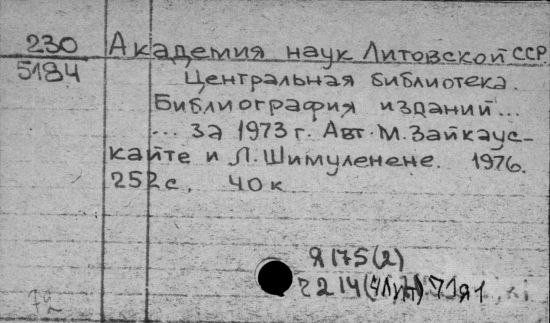 230 Академия наук Литовской ССР.
5184 Центральная библиотека.
Библиография изданий...
... за 1973 г. Авт. М. Зайкаус-
кайте и Л. Шимуленене. 1976.
252 с. 40 к
Я175(2)
Ч214(4Лит)71я1
72